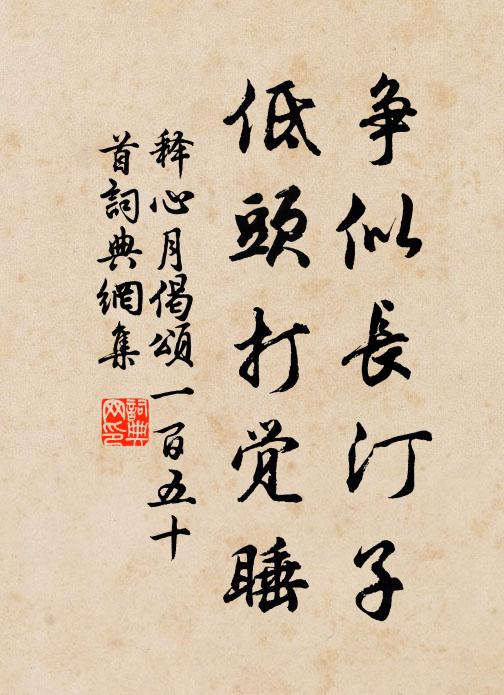 争似長汀子
低頭打覚睡
释心月偈頌一百五十
首詞典網集
詞典
网印